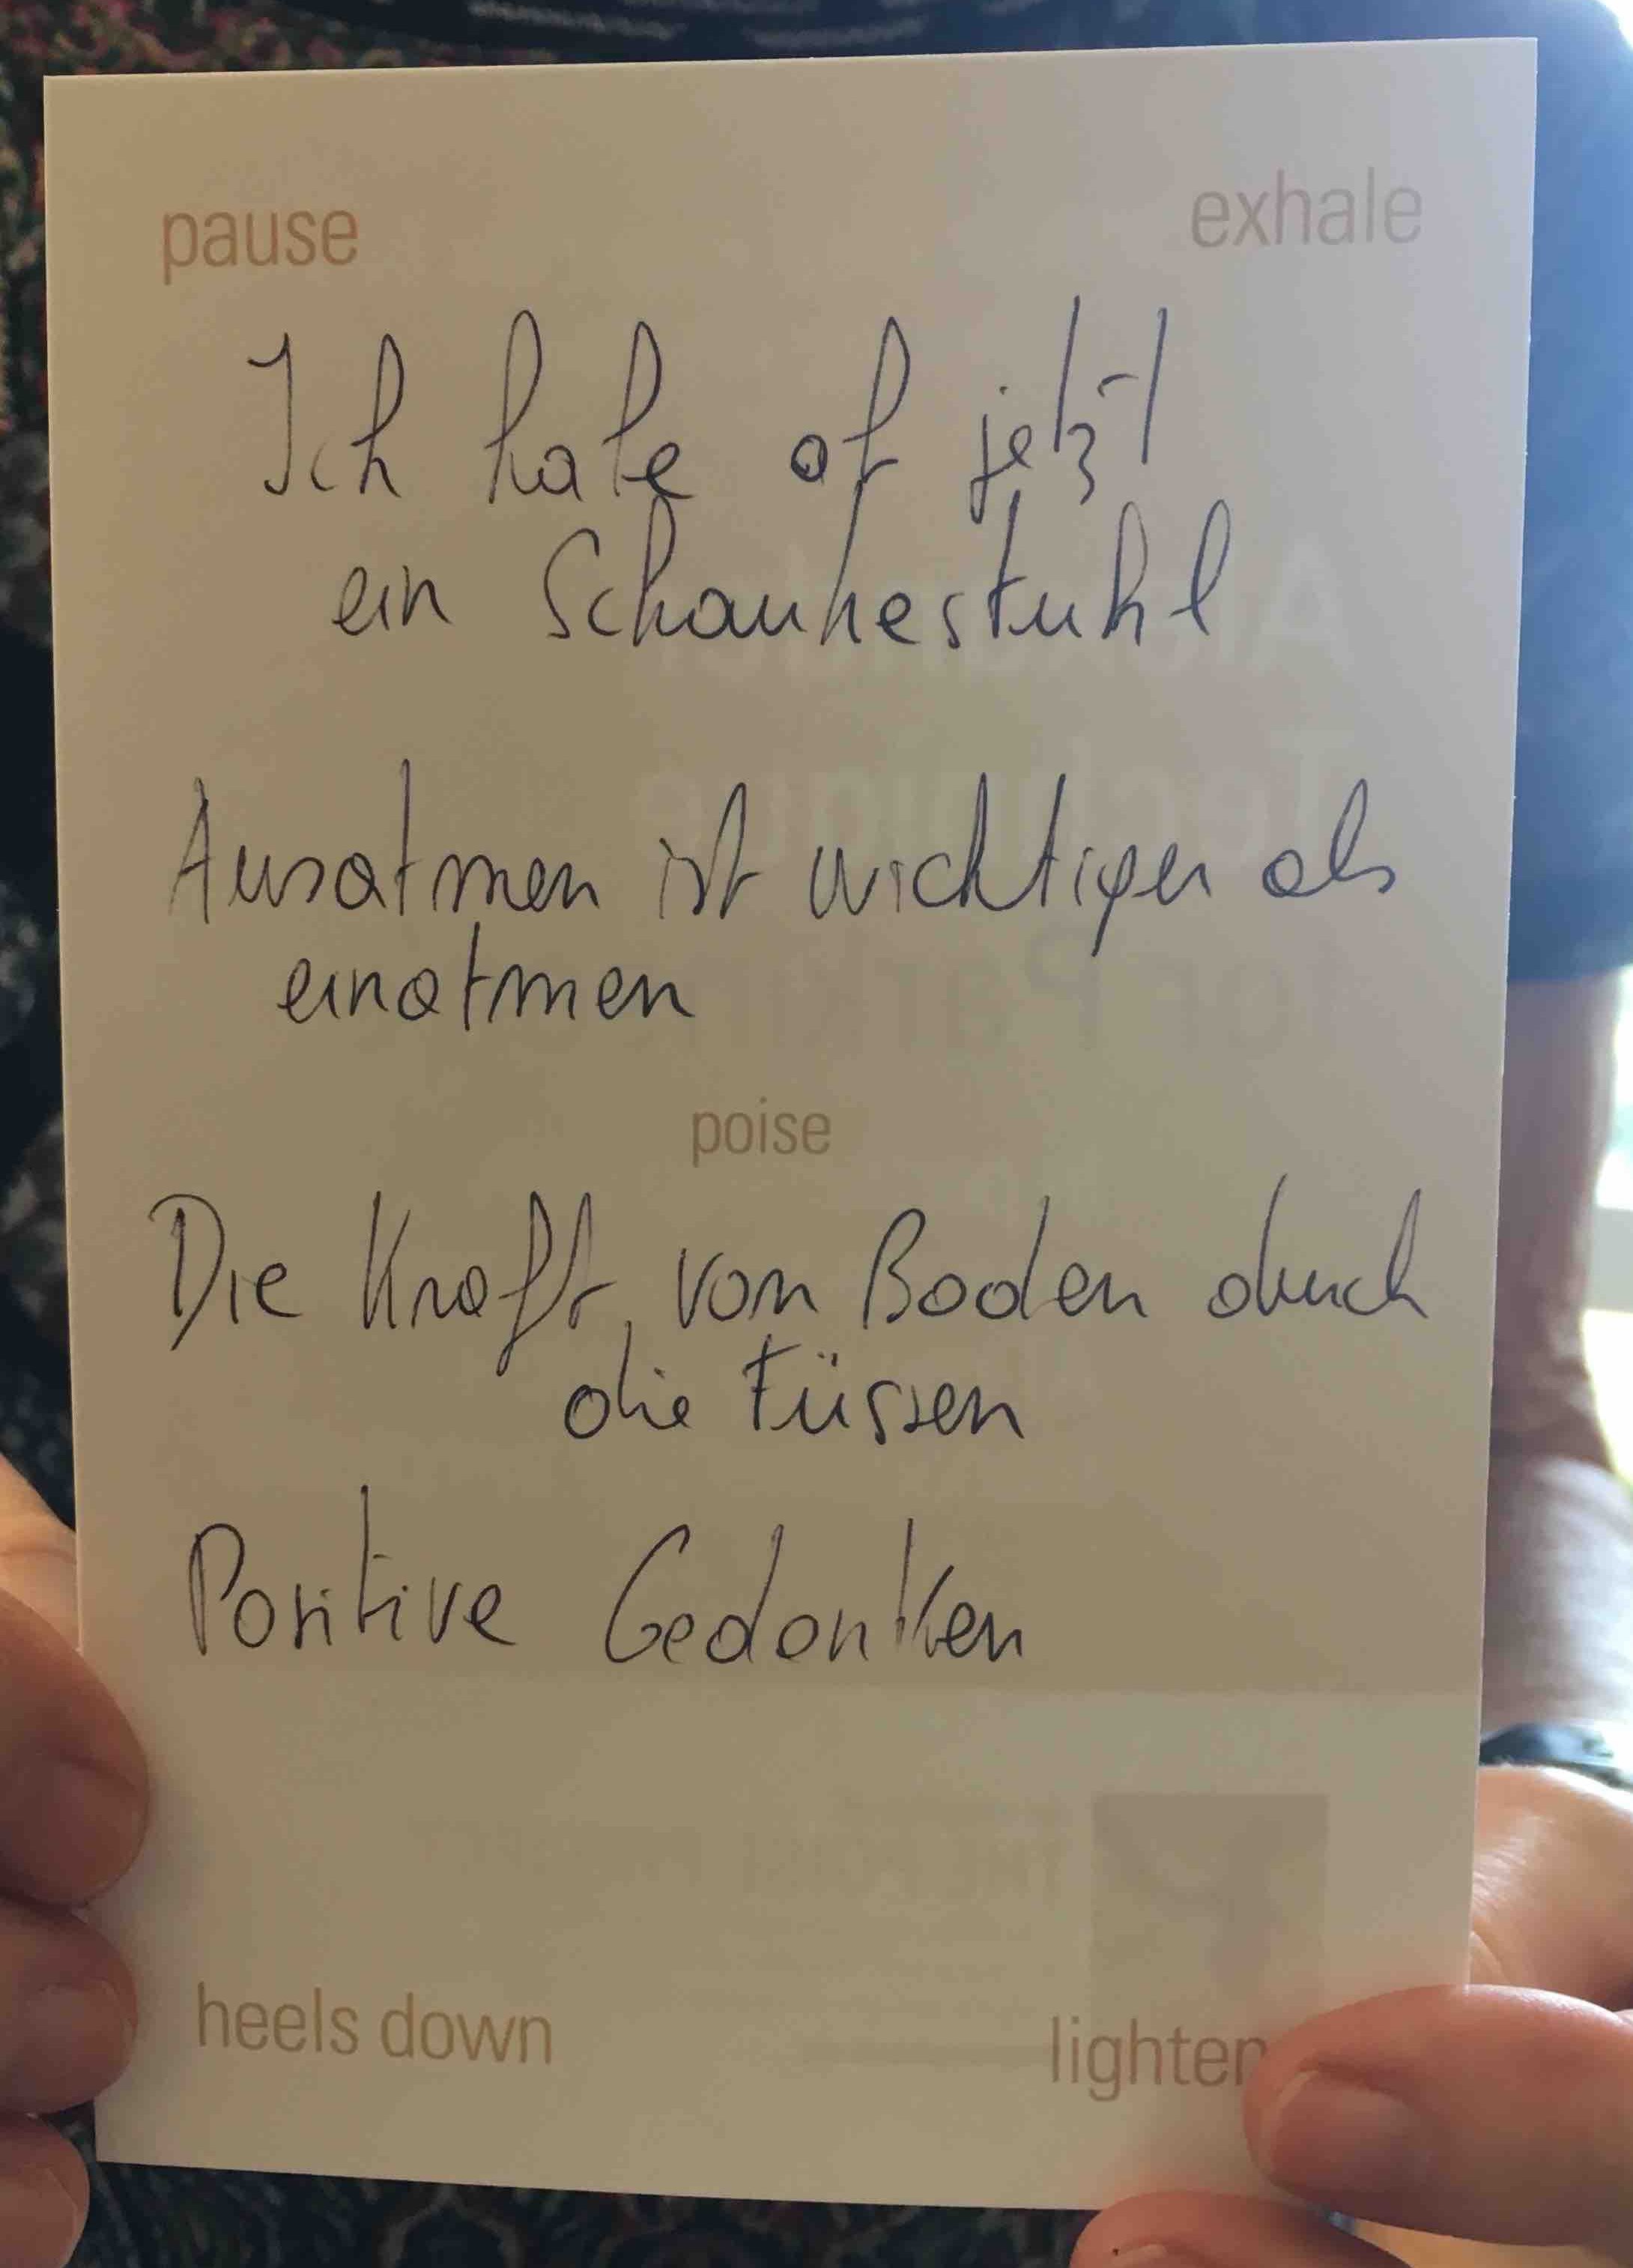 pause exhale
Ich habe ab jetzt
ein Schaukestuhl
Ausatmen ist wichtiger als
einatmen
poise
Die Kraft von Boden durch
die Füssen
Positive Gedanken
heels down lighten